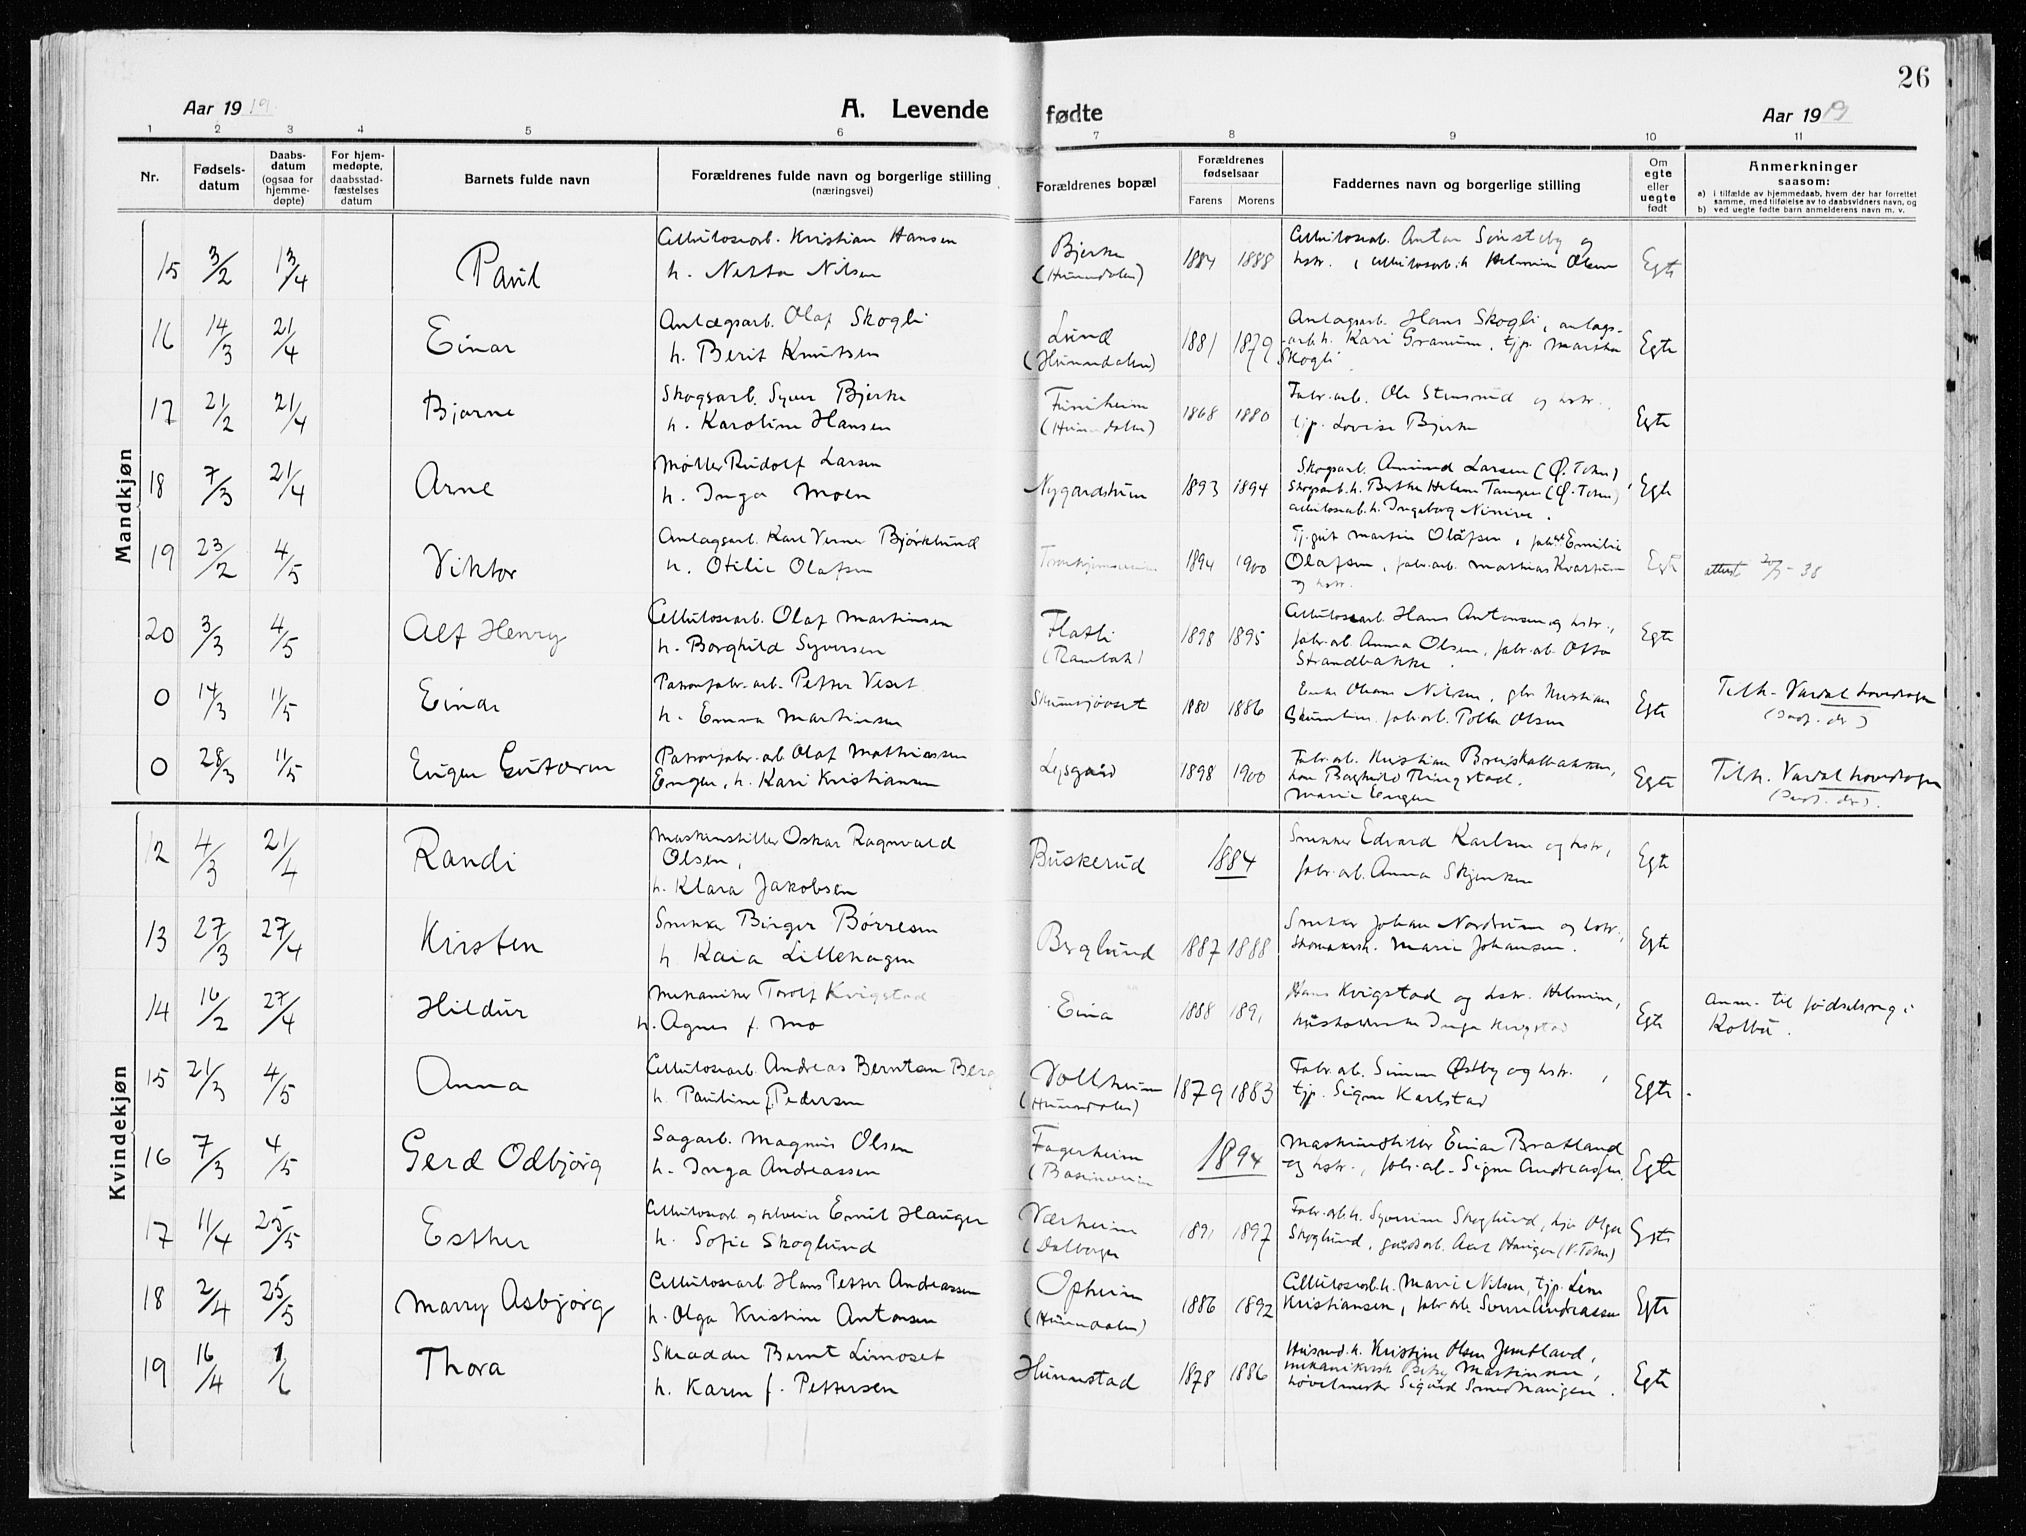 26
Aar 1919.
A. Levende fødte
Aar 1919
1 2 3 4 5 6 7 8 9 10 11
Nr.
Fødsels-
datum
Daabs-
datum
(ogsaa for
hjemme-
døpte)
For hjem-
medøpte,
daabsstad-
fæstelses
datum
Barnets fulde navn
Forældrenes fulde navn og borgerlige stilling
(næringsvei)
Forældrenes bopæl
Forældrenes
fødselsaar
Farens Morens
Faddernes navn og borgerlige stilling
Om
egte
eller
uegte
født
Anmerkninger
saasom:
a) i tilfælde av hjemmedaab, hvem der har forrettet
samme, med tilføielse av to daabsvidners navn, og
b) ved uegte fødte barn anmelderens navn m. v.
Mandkjøn
15 3/2 13/4 Paul
Cellulosearb. Kristian Hansen
h. Netta Nilsen
Bjerke
(Hunndalen)
1884 1888
Cellulosearb. Anton Sønsteby og
hstr., cellulosearb.h. Helmine Olsen
Egte
16 14/3 21/4 Einar
Anlægsarb. Olaf Skogli
h. Berit Knutsen
Lund
(Hunndalen)
1881 1879
Anlagsarb. Hans Skogli, anlags-
arb.h. Kari Granum, tjp. Martha
Skogli
Egte
17 21/2 21/4 Bjarne
Skogsarb. Syver Bjerke
h. Karoline Hansen
Furuheim
(Hunndalen)
1868 1880
Fabr.arb. Ole Stensrud og hstr.,
tjp. Lovise Bjerke
Egte
18 7/3 21/4 Arne
Møller Rudolf Larsen
h. Inga Moen
Nygardstuen
1893 1894
Skogsarb. Amund Larsen (Ø. Toten),
Skogsarb.h. Berthe Helene Tangen (Ø. Toten),
cellulosearb.h. Ingeborg
Egte
19 23/2 4/5 Viktor
Anlagsarb. Karl Verner Bjørklund
h. Otilie Olafsen
1894 1900
Tj.gut Martin Olafsen, Emilie
Olafsen, fabr.arb. Mathias Kvartum
og hstr.
Egte
attest 20/5-38
20 3/3 4/5 Alf Henry
Cellulosearb. Olaf Martinsen
h. Borghild Syversen
Flatli
1898 1895
Cellulosearb Hans Antonsen og hstr.,
fabr.arb. Anna Olsen, fabr.arb. Otto
Strandbakke.
Egte
0 14/3 11/5 Einar
Patronfabr.arb. Petter Veset
h. Emma Martinsen
Skumsjøvset
1880 1886
Nilsen, gbr Kristian
fabr.arb. Tolla Olsen
Egte
Tilh. Vardal hovedsogn
0 28/3 11/5 Eugen Guttorm
Patronfabr.arb Olaf Mathiassen
Engen, h. Kari Kristiansen
Lysgård
1898 1900
Fabr.arb. Kristian Breiskalbakken,
hon Borghild Thingstad.
Marie Engen
Egte
Tilh. Vardal hovedsogn
Kvindekjøn
12 4/3 21/4 Randi
Maskinstiller Oskar Ragnvald
Olsen,
h. Klara Jakobsen
Buskerud
1884
Snekker Edvard Karlsen og hstr,
fabr.arb. Anna Skjenken
Egte
13 27/3 27/4 Kirsten
Snekker Birger Børresen
h Kaia Lillehagen
Berglund
1887 1888
Snekker Johan Nordrum og hstr,
Skomakerh. Marie Johansen.
Egte
14 16/2 27/4 Hildur
Mekaniker Torolf Kvigstad
h. Agnes f. Mo
Eina
1888 1891
Hans Kvigstad og hstr. Helmine,
husholderske Inga Kvigstad
Egte
Anm. til fødselsreg. i
Kolbu.
15 21/3 4/5 Anna
Cellulosearb. Andreas Berntsen Berg
h. Pauline f. Pedersen
Vollheim
(Hunndalen)
1879 1883
Fabr.arb. Simen Østby og hstr.,
tjp. Signe Karlstad
Egte
16 7/3 4/5 Gerd Odbjørg
Sagarb. Magnus Olsen
h. Inga Andreassen
Fagerheim
1894
Maskinstiller Einar Bratland
og hstr., fabr.arb. Signe Andreassen.
Egte
17 11/4 25/5 Esther
Cellulosearb og selveier Emil Hauger
h. Sofie Skoglund
Værheim
(Dalborgen
1891 1897
Fabr.arb.h. Syverine Skoglund, Olga
Skoglund, gårdsarb. Axel Hauger (V. Toten)
Egte
18 2/4 25/5 Marry Asbjørg
Cellulosearb Hans Petter Andreassen
h. Olga Kristine Antonsen
Opheim
(Hunndalen)
1886 1892
Cellulosearb.h. Marie Nilsen, tjp. Lene
Kristiansen, fabr.arb Sverre Andreassen
Egte
19 16/4 1/6 Thora
Skrædder Bernt Limoset
h. Karen f. Pettersen
Hunnstad
1878 1886
Husmd.h. Kristine Olsen Jemtland,
mekanikerh Betsy Martinsen,
høvelmester Sigurd Smedhaugen.
Egte